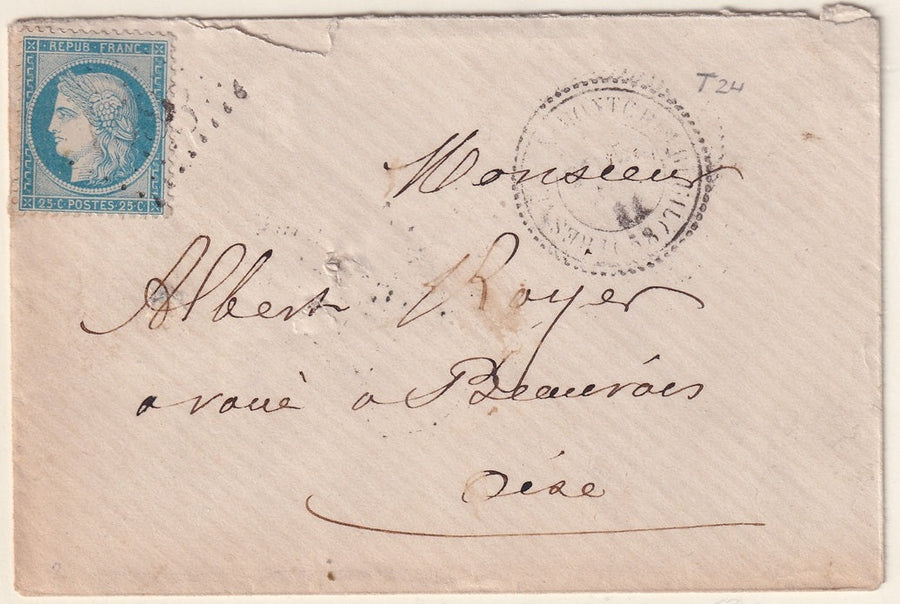 REPUB·FRANC
25·C·POSTES·25·C
T 24
11
Monsieur
Albert Royer
avoué à Beauvais
Oise